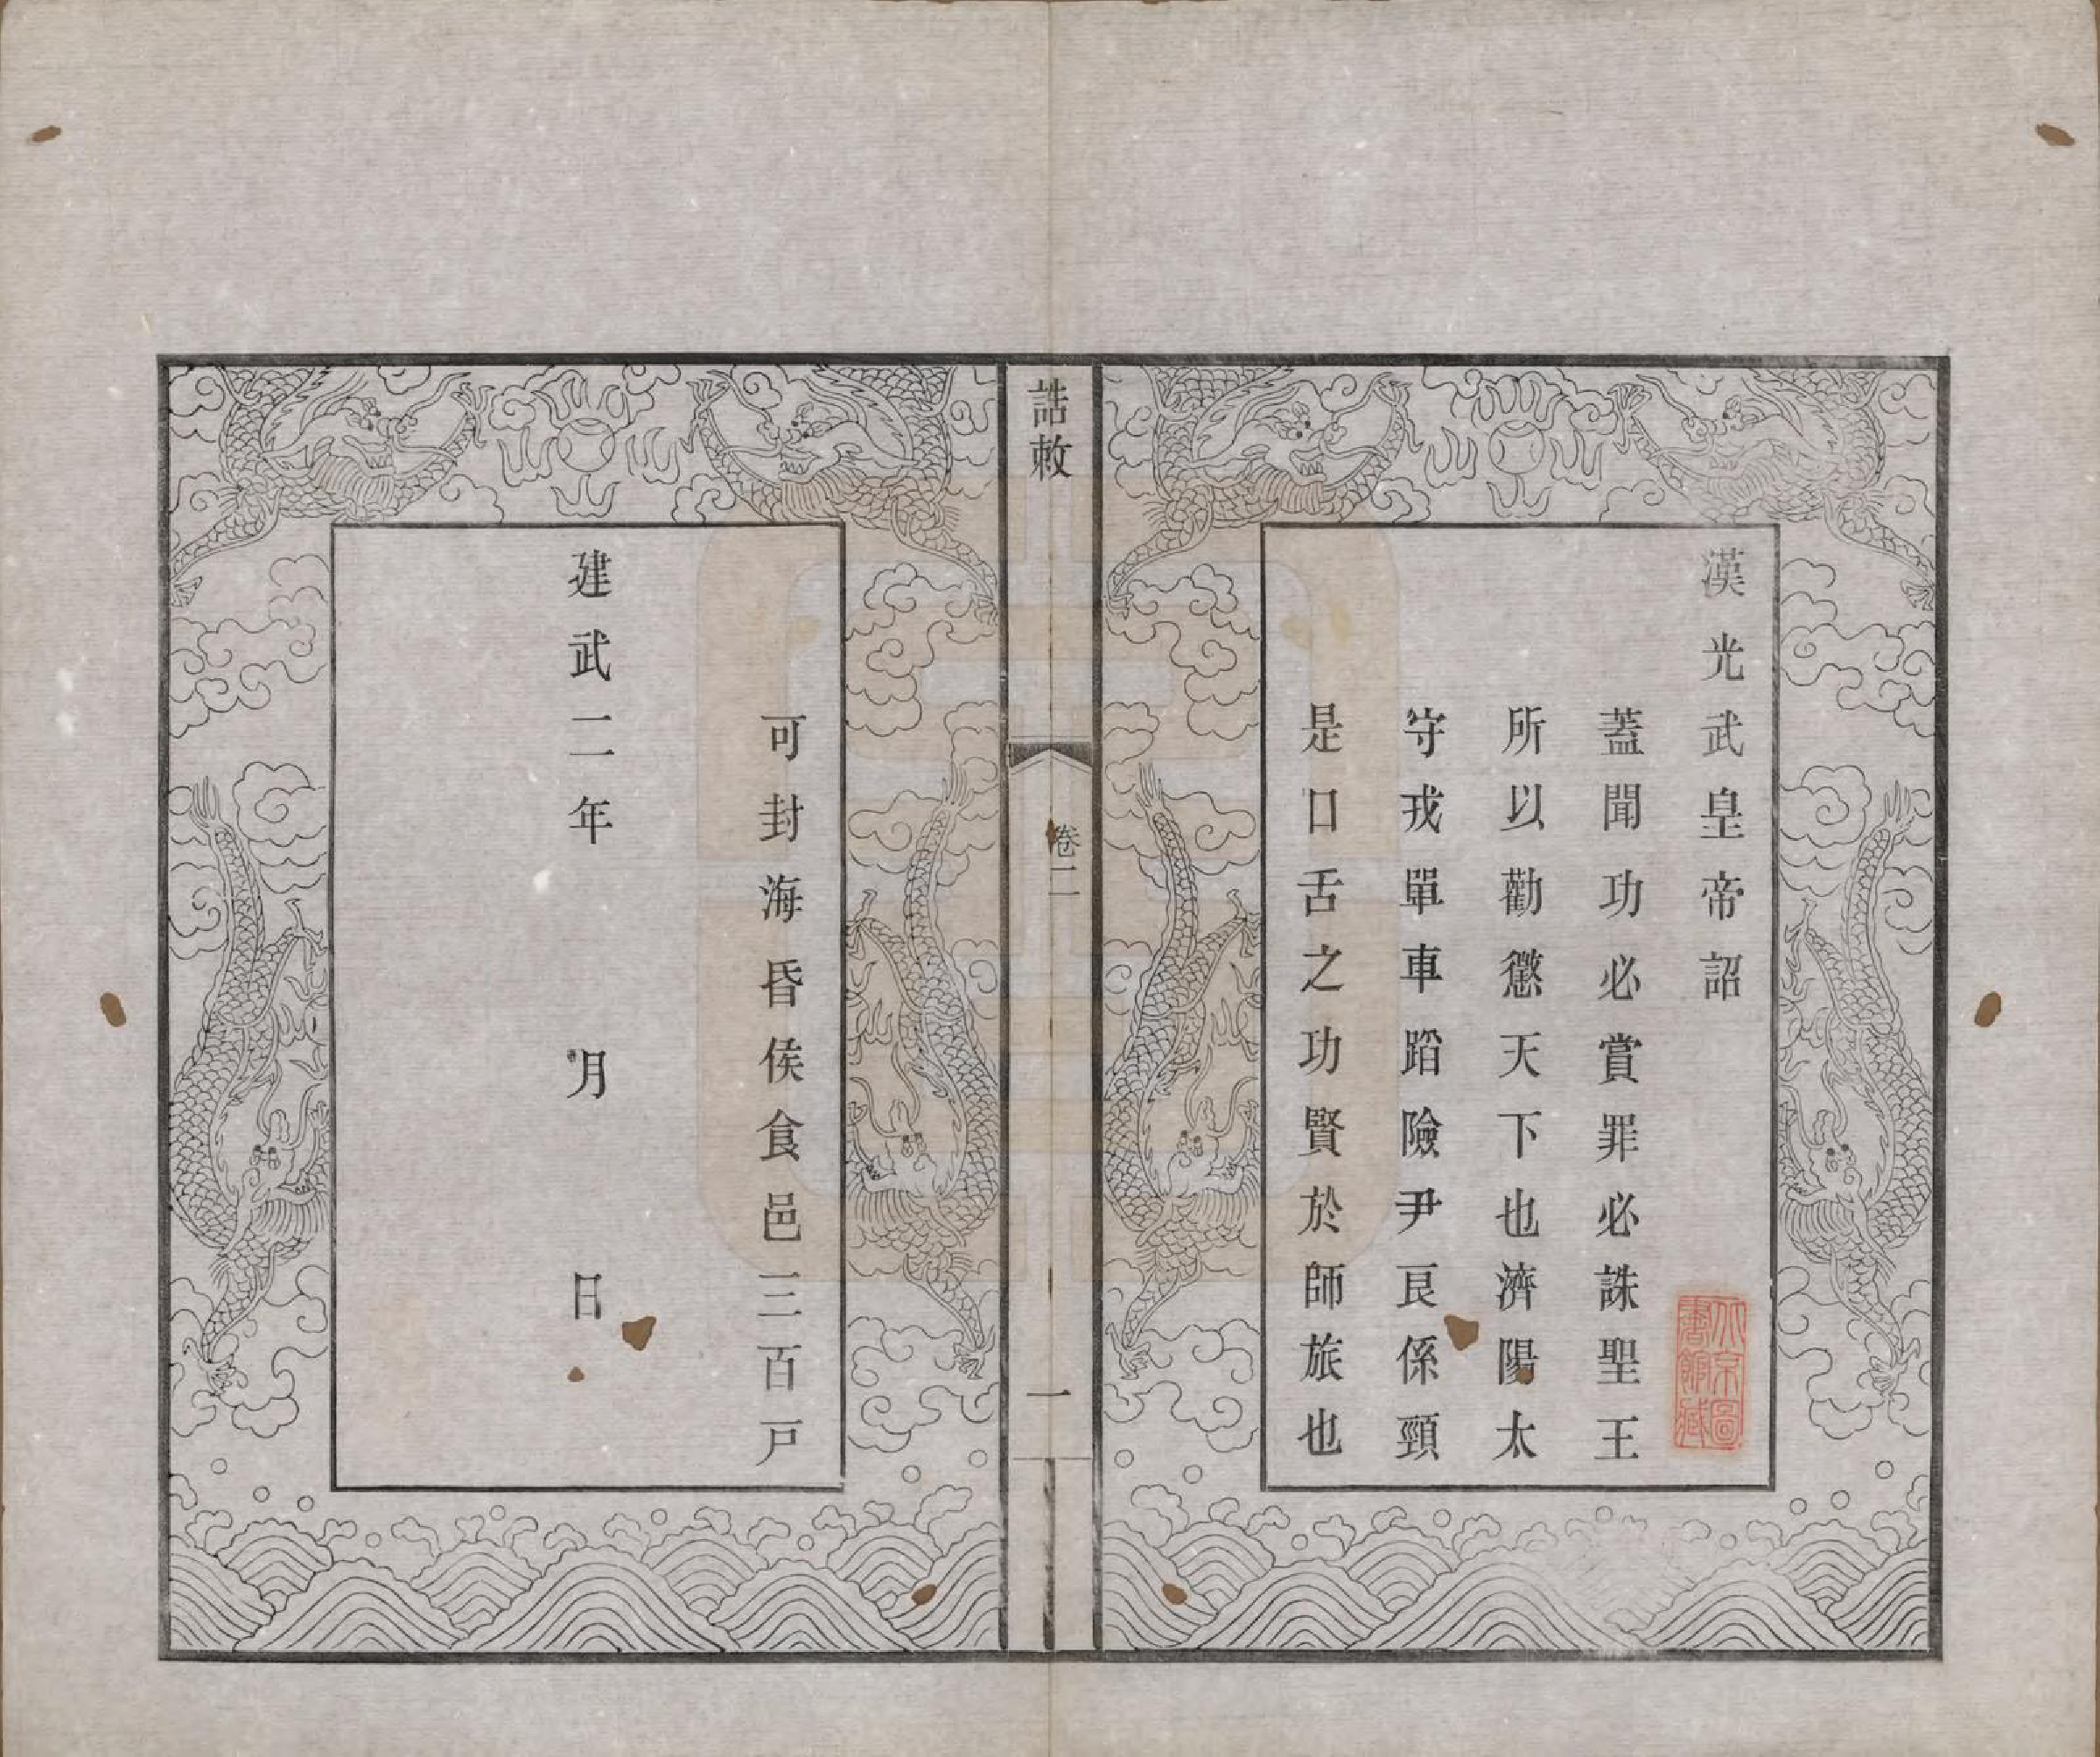 漢光武皇帝詔
蓋聞功必賞罪必誅聖王
所以勸懲天下也濟陽太
守戎單車蹈險尹艮係頸
是口舌之功賢於師旅也
誥敕
卷二
一
可封海昏侯食邑三百戸
建武二年 月 日
北京圖
書館藏